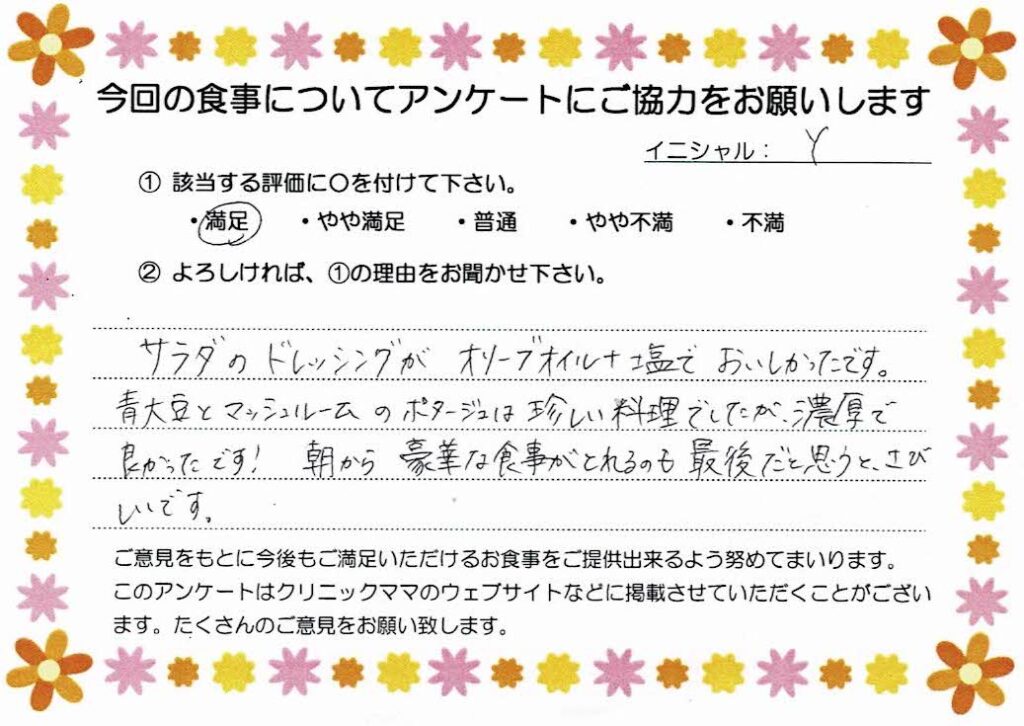 今回の食事についてアンケートにご協力をお願いします
イニシャル： Y
① 該当する評価に○を付けて下さい。
・満足 ・やや満足 ・普通 ・やや不満 ・不満
② よろしければ、①の理由をお聞かせ下さい。
サラダのドレッシングが オリーブオイル＋塩で おいしかったです。
青大豆とマッシュルームのポタージュは珍しい料理でしたが、濃厚で
良かったです！ 朝から豪華な食事がとれるのも最後だと思うと、さび
しいです。
ご意見をもとに今後もご満足いただけるお食事をご提供出来るよう努めてまいります。
このアンケートはクリニックママのウェブサイトなどに掲載させていただくことがござい
ます。たくさんのご意見をお願い致します。